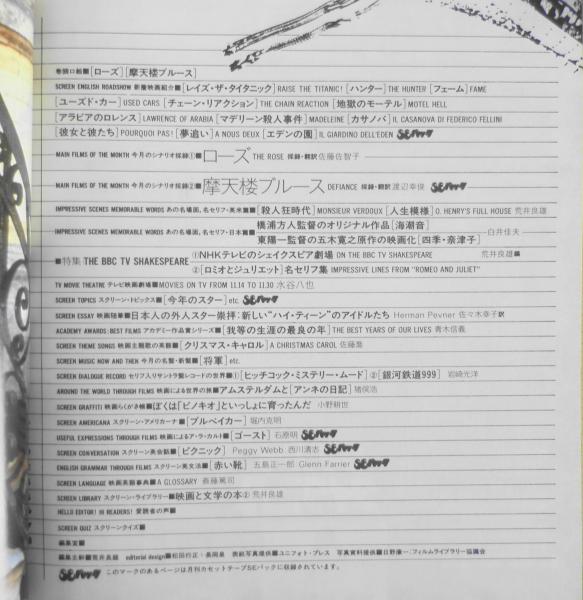 巻頭口絵■[ローズ][摩天楼ブルース]
SCREEN ENGLISH ROADSHOW 新着映画紹介■[レイズ・ザ・タイタニック] RAISE THE TITANIC! [ハンター] THE HUNTER [フェーム] FAME
[ユーズド・カー] USED CARS [チェーン・リアクション] THE CHAIN REACTION [地獄のモーテル] MOTEL HELL
[アラビアのロレンス] LAWRENCE OF ARABIA [マデリーン殺人事件] MADELEINE [カサノバ] IL CASANOVA DI FEDERICO FELLINI
[彼女と彼たち] POURQUOI PAS! [夢追い] A NOUS DEUX [エデンの園] IL GIARDINO DELL'EDEN SEパック
MAIN FILMS OF THE MONTH 今月のシナリオ採録①■ローズ THE ROSE 採録・翻訳 佐藤佐智子
MAIN FILMS OF THE MONTH 今月のシナリオ採録②■摩天楼ブルース DEFIANCE 採録・翻訳 渡辺幸俊 SEパック
IMPRESSIVE SCENES MEMORABLE WORDS あの名場面, 名セリフ・英米篇■[殺人狂時代] MONSIEUR VERDOUX [人生模様] O. HENRY'S FULL HOUSE 荒井良雄
IMPRESSIVE SCENES MEMORABLE WORDS あの名場面, 名セリフ・日本篇■橋浦方人監督のオリジナル作品[海潮音]
東陽一監督の五木寛之原作の映画化[四季・奈津子] 白井佳夫
■特集 THE BBC TV SHAKESPEARE ①NHKテレビのシェイクスピア劇場 ON THE BBC TV SHAKESPEARE 荒井良雄編
②[ロミオとジュリエット]名セリフ集 IMPRESSIVE LINES FROM "ROMEO AND JULIET"
TV MOVIE THEATRE テレビ映画劇場■MOVIES ON TV FROM 11.14 TO 11.30 水谷八也
SCREEN TOPICS スクリーン・トピックス■[今年のスター] etc. SEパック
SCREEN ESSAY 映画随筆■日本人の外人スター崇拝：新しい"ハイ・ティーン"のアイドルたち Herman Pevner 佐々木幸子訳
ACADEMY AWARDS: BEST FILMS アカデミー作品賞シリーズ■[我等の生涯の最良の年] THE BEST YEARS OF OUR LIVES 青木信義
SCREEN THEME SONGS 映画主題歌の英語■[クリスマス・キャロル] A CHRISTMAS CAROL 佐藤喬
SCREEN MUSIC NOW AND THEN 今月の名盤・新盤■[将軍] etc.
SCREEN DIALOGUE RECORD セリフ入りサントラ盤レコードの世界■①[ヒッチコック・ミステリー・ムード] ②[銀河鉄道999] 岩崎光洋
AROUND THE WORLD THROUGH FILMS 映画による世界の旅■アムステルダムと[アンネの日記] 猪俣浩
SCREEN GRAFFITI 映画らくがき帳■ぼくは「ピノキオ」といっしょに育ったんだ 小野耕世
SCREEN AMERICANA スクリーン・アメリカーナ■[ブルベイカー] 堀内克明
USEFUL EXPRESSIONS THROUGH FILMS 映画によるア・ラ・カルト■[ゴースト] 石原明 SEパック
SCREEN CONVERSATION スクリーン英会話■[ピクニック] Peggy Webb 西川清志 SEパック
ENGLISH GRAMMAR THROUGH FILMS スクリーン英文法■[赤い靴] 五島正一郎 Glenn Farrier SEパック
SCREEN LANGUAGE 映画英語事典■A GLOSSARY 斎藤篤司
SCREEN LIBRARY スクリーン・ライブラリー■映画と文学の本② 荒井良雄
HELLO EDITOR! HI READERS! 愛読者の声■
SCREEN QUIZ スクリーンクイズ■
編集室■
編集主幹■荒井良雄 editorial design■松田行正＋長岡泉 表紙写真提供■ユニフォト・プレス 写真資料提供■日野康一：フィルムライブラリー協議会
SEパック このマークのあるページは月刊カセットテープSEパックに収録されています。